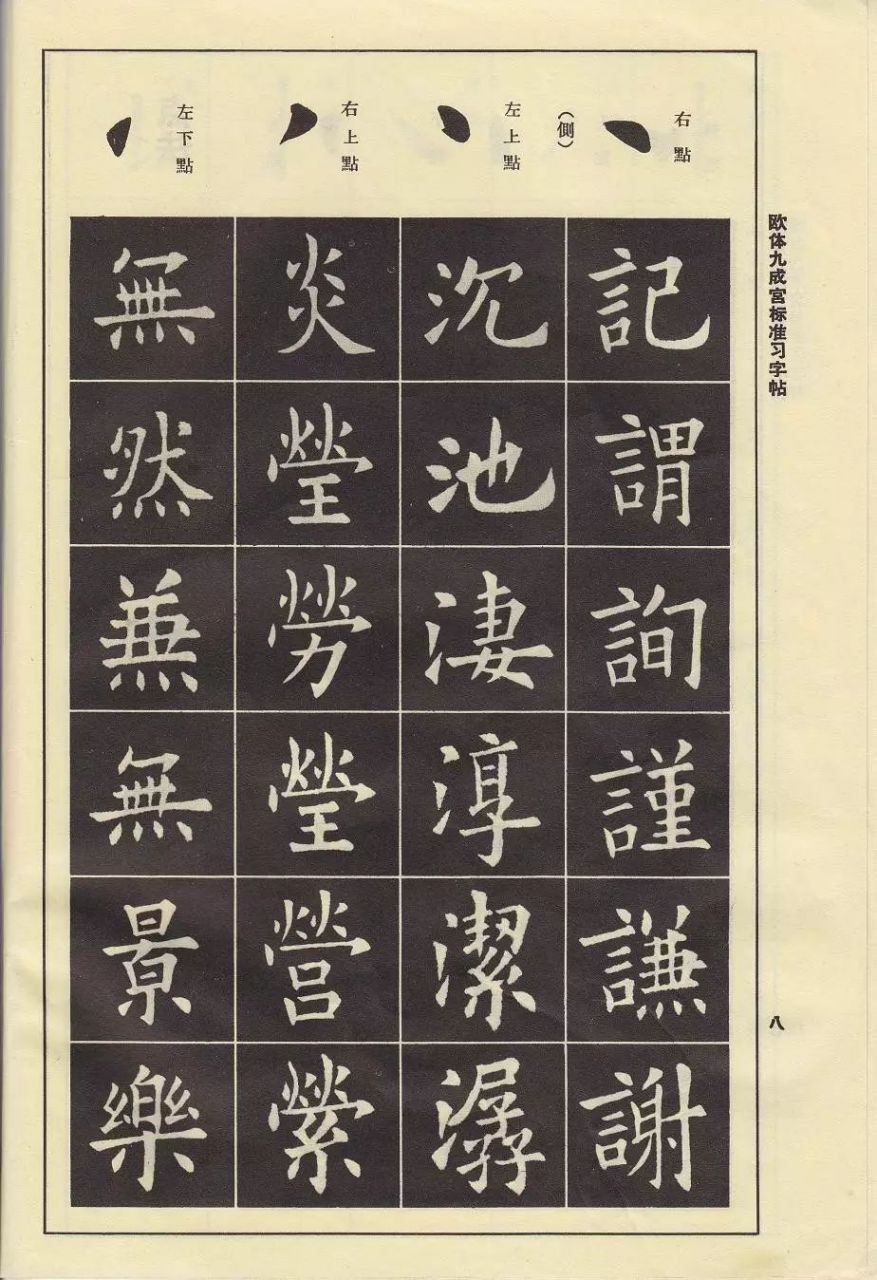 欧体九成宫标准习字帖
八
右點
(側)
記謂詢謹謙謝
左上點
沉池淒淳潔潺
右上點
炎瑩勞瑩營縈
左下點
無然兼無景樂